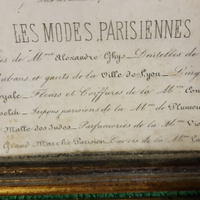 LES MODES PARISIENNES
es de Mme Alexandre Ghys — Dentelles de
ubans et gants de la Ville de Lyon — Ling
Fleurs et Coiffures de la Mon
Jupons parisiens de la Mon de Plument
Malle des Indes — Parfumeries de la Mon
Grand Marché Parisien